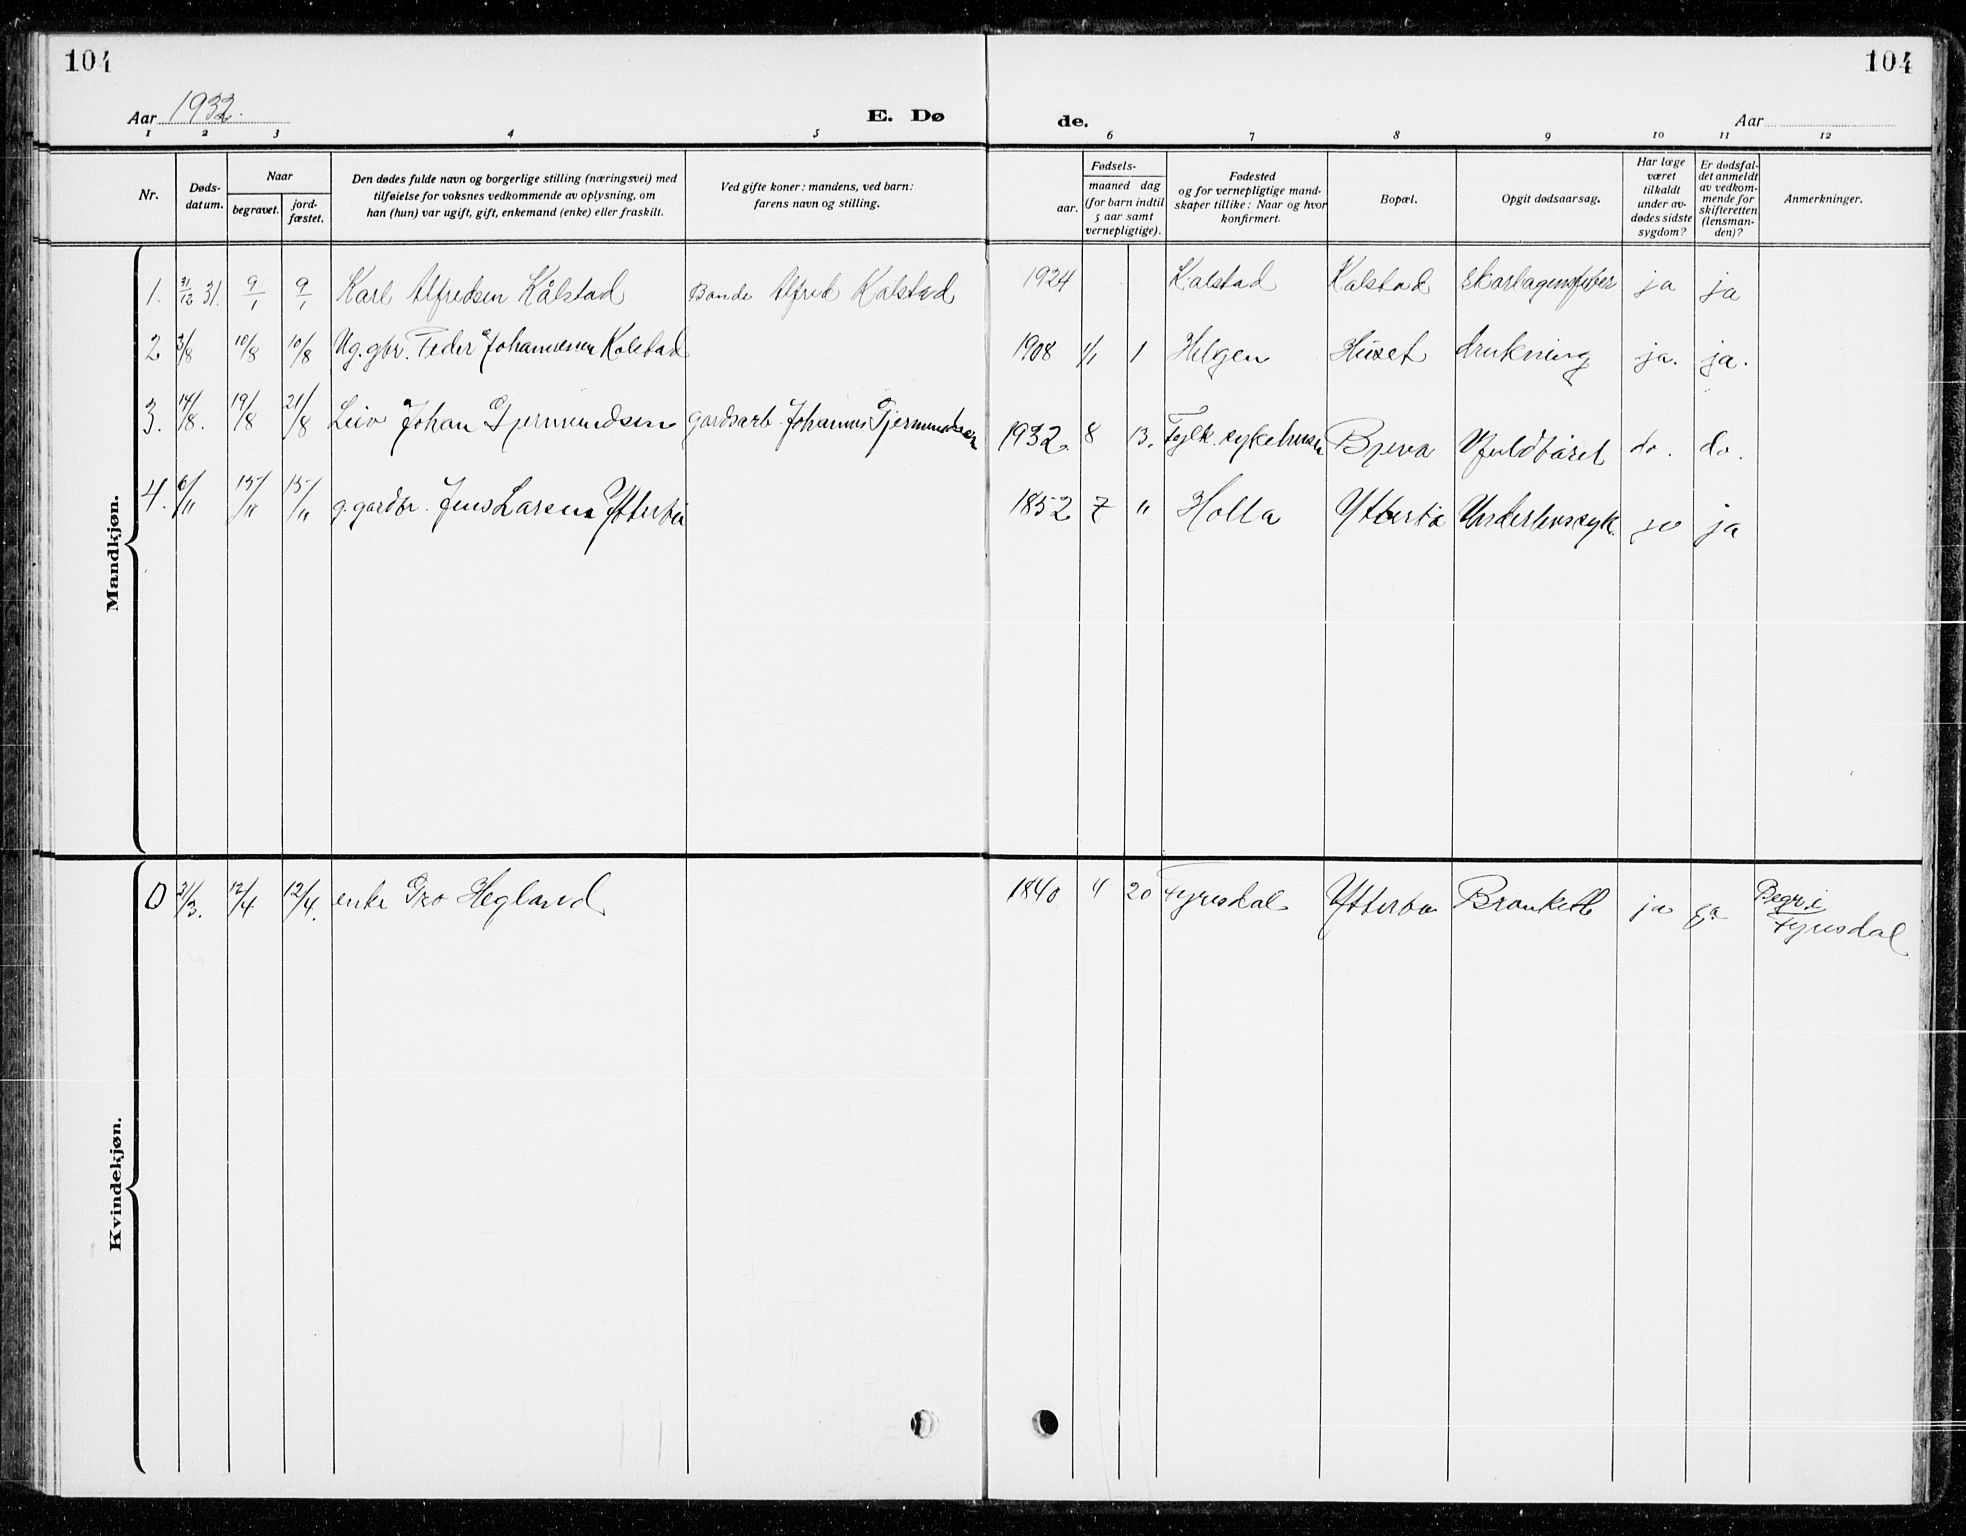 104
104
Aar 1932.
E. Dø
de.
Aar
1 2 3 4 5 6 7 8 9 10 11 12
Nr.
Døds-datum.
Naar
begravet.
jord-fæstet.
Den dødes fulde navn og borgerlige stilling (næringsvei) med
tilføielse for voksnes vedkommende av oplysning, om
han (hun) var ugift, gift, enkemand (enke) eller fraskilt.
Ved gifte koner: mandens, ved barn:
farens navn og stilling.
Fødsels-
aar.
maaned dag
(for barn indtil
5 aar samt
vernepligtige).
Fødested
og for vernepligtige mand-
skaper tillike: Naar og hvor
konfirmert.
Bopæl.
Opgit dødsaarsag.
Har læge
været
tilkaldt
under av-
dødes sidste
sygdom?
Er dødsfal-
det anmeldt
av vedkom-
mende for
skifteretten
(lensman-
den)?
Anmerkninger.
Mandkjøn.
1. 31/12 31. 9/1 9/1 Karl Alfredsen Kålstad Bonde Alfred Kalstad 1924 Kalstad Kalstad Skarlagensfeber ja ja
2 3/8 10/8 10/8 Ug. gbr. Peder Johannesen Kolstad 1908 1/1 1 Helgen Huset drukning ja. ja.
3. 14/8. 19/8 21/8 Leiv Johan Gjermundsen gardsarb. Johannes Gjermundsen 1932 8 13. Fylk. sykehuset Bjerva Ufuldbåret do. do.
4. 6/11 15/11 15/11 g. gardbr. Jens Larsen Ytterbø 1852 7 " Holla Ytterbø Underlivssyk. ja ja
Kvindekjøn.
0 31/3. 12/4 12/4. enke Gro Hegland 1840 4 20 Fyresdal Ytterbø Bronkett ja ja Begr. i
Fyresdal